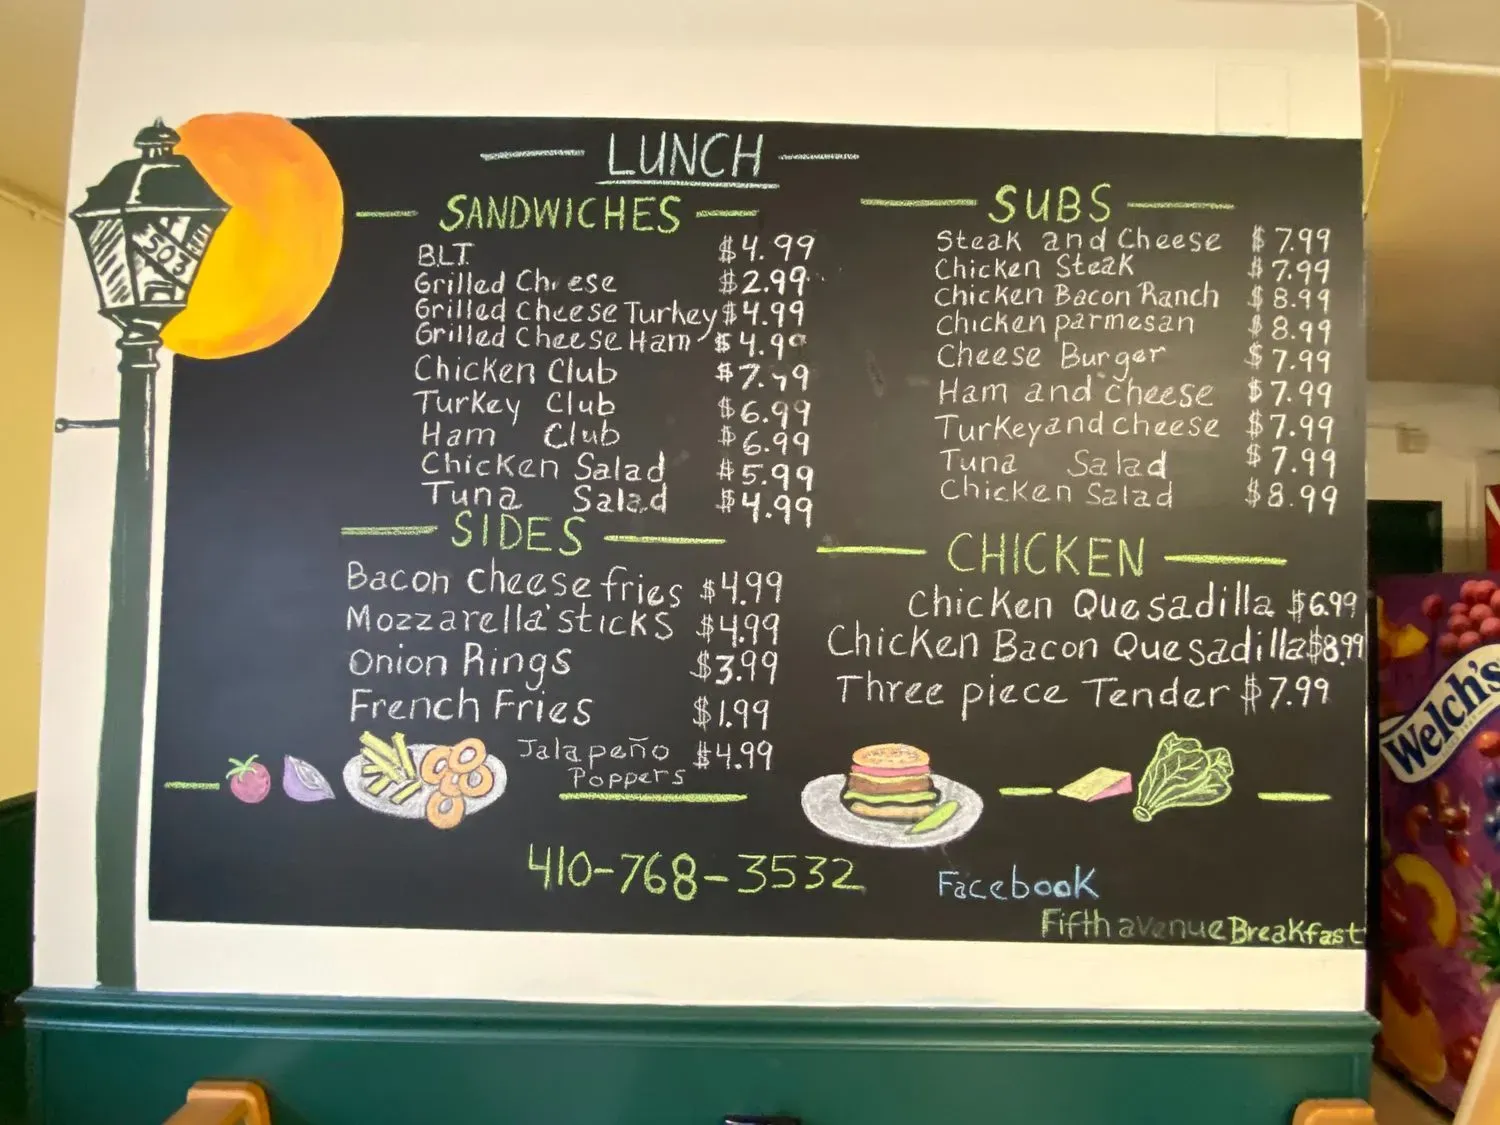 LUNCH
SANDWICHES
BLT $4.99
Grilled Cheese $2.99
Grilled Cheese Turkey $4.99
Grilled Cheese Ham $4.99
Chicken Club $7.99
Turkey Club $6.99
Ham Club $6.99
Chicken Salad $5.99
Tuna Salad $4.99
SIDES
Bacon cheese fries $4.99
Mozzarella sticks $4.99
Onion Rings $3.99
French Fries $1.99
Jalapeño $4.99
Poppers
SUBS
Steak and Cheese $7.99
Chicken Steak $7.99
Chicken Bacon Ranch $8.99
Chicken parmesan $8.99
Cheese Burger $7.99
Ham and cheese $7.99
Turkey and cheese $7.99
Tuna Salad $7.99
Chicken Salad $8.99
CHICKEN
Chicken Quesadilla $6.99
Chicken Bacon Quesadilla $8.99
Three piece Tender $7.99
410-768-3532
Facebook
Fifth avenue Breakfast
503
Welch's